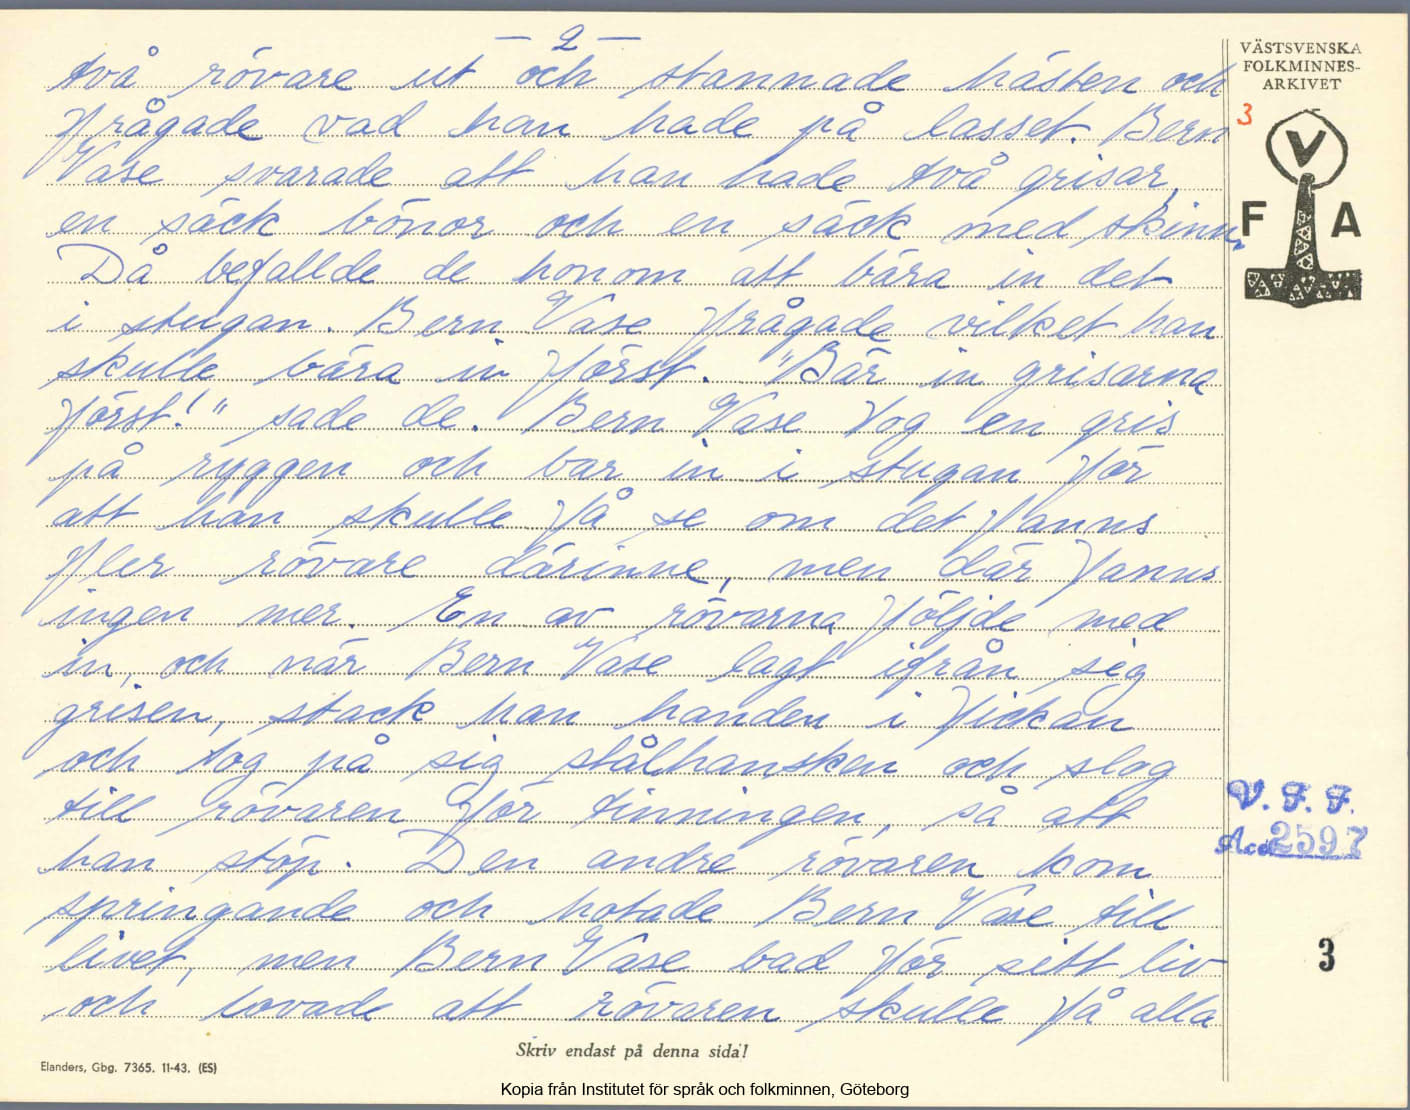 — 2 —
två rövare ut och stannade hästen och
frågade vad han hade på lasset. Bern
Vase svarade att han hade två grisar,
en säck bönor och en säck med skinn.
Då befallde de honom att bära in det
i stugan. Bern Vase frågade vilket han
skulle bära in först. "Bär in grisarna
först!" sade de. Bern Vase tog en gris
på ryggen och bar in i stugan för
att han skulle få se om det fanns
fler rövare därinne, men där fanns
ingen mer. En av rövarna följde med
in, och när Bern Vase lagt ifrån sig
grisen, stack han handen i fickan
och tog på sig stålhansken och slog
till rövaren för tinningen, så att
han stöp. Den andre rövaren kom
springande och hotade Bern Vase till
livet, men Bern Vase bad för sitt liv
och lovade att rövaren skulle få alla
VÄSTSVENSKA
FOLKMINNES-
ARKIVET
3
V
F A
V. F. F.
Acc. 2597
3
Skriv endast på denna sida!
Elanders, Gbg. 7365. 11-43. (ES)
Kopia från Institutet för språk och folkminnen, Göteborg